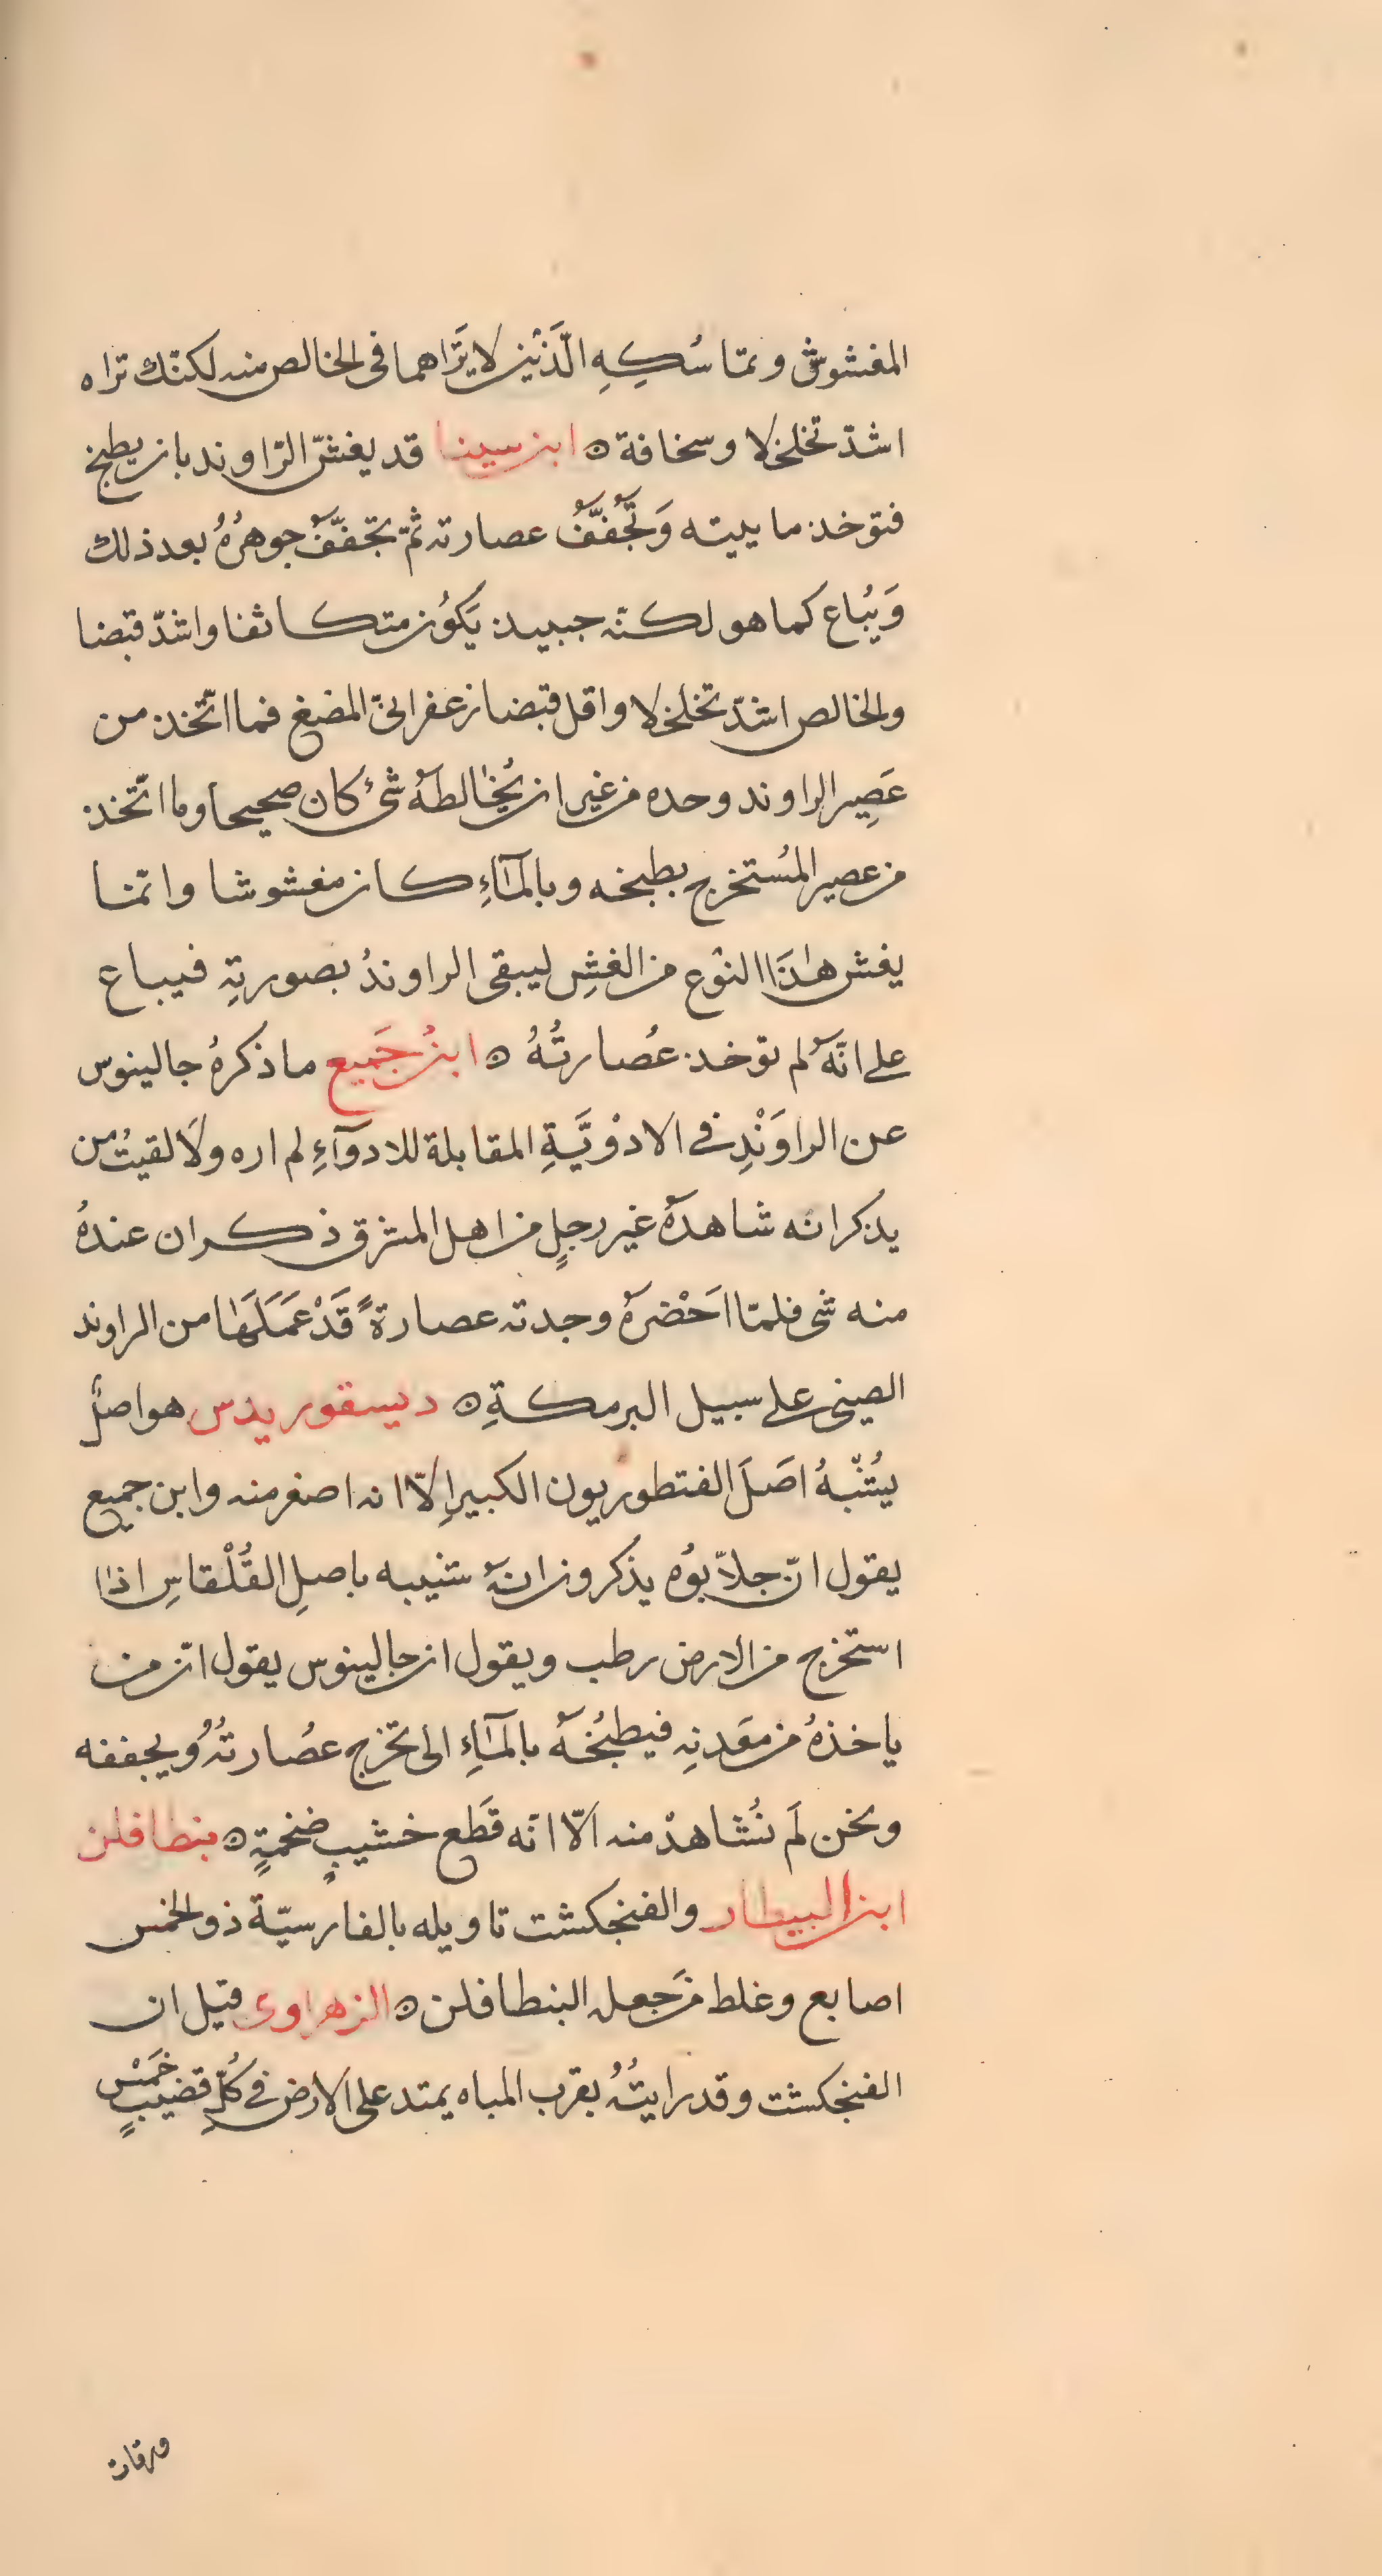 المغشوش وتماسُكِهِ الّذَيْن لا يَرَاهما في الخالص منه لكنّك تراه
اشدّ تخلخلا وسخافة ٥ ابن سينا قد يغشّ الرّاوند بان يطبخ
فتوخذ ماييته وَتُجَفَّفُ عصارته ثمّ تجفّفُ جوهرُهُ بعد ذلك
وَيُباع كما هو لكنّه حينيذ يَكوُن متكاثفا واشدّ قبضا
والخالص اشدّ تخلخلا واقل قبضا زعفرانىّ المضغ فما اتّخذ من
عَصِير الراوند وحده من غير ان يُخٰالطهُ شئ كان صحيحاً وما اتّخذ
من عصير المُستخرج بطبخه وبالمآءِ كان مغشوشا وانّما
يغش هٰذَا النوْع من الغشِ ليبقى الراوندُ بصورتِهِ فيباع
على انّهُ لم توّخذ عُصارتُهُ ٥ ابنُ جَميع ما ذكرهُ جالينوس
عن الراوَنْدِ في الادْوِيَةِ المقابلة للادوآءِ لم اره ولَا لقيتُ من
يذكر انه شاهدهُ غير رجلٍ من اهل المشرق ذكر ان عندهُ
منه شى فلمّا احَضْرهُ وجدته عصارةً قَدْ عَمَلَهٰا من الراوند
الصينى على سبيل البرمكةِ ٥ ديسقوريدس هو اصلٌ
يُشْبهُ اصَلَ الفنطوريون الكبير اِلّا انه اصغر منه وابن جميع
يقول انّ جلاّبوُه يذكرون انهُ شبيه باصلِ القُلْقاسِ اذا
استخرج من الارض رطب ويقول ان جالينوس يقول انّ من
ياخذهُ من مَعَدنِهِ فيطبُخهُ بالمآءِ الى تخرج عصُارتُهُ ويجففه
ونحن لَم نُشاهدْ منه الّا انّه قَطَع خشبيٍ ضخمةٍ ٥ بنطافلن
ابن البيطار والفنجكشت تاويله بالفارسيّة ذو الخمس
اصابع وغلط مَن جَعله البنطافلن ٥ الزهراوى قيل ان
الفنجكشت وقد رايتُهُ بقرب المياه يمتد على الارض في كُلّ قضيبٍ خَمْس
ورقات